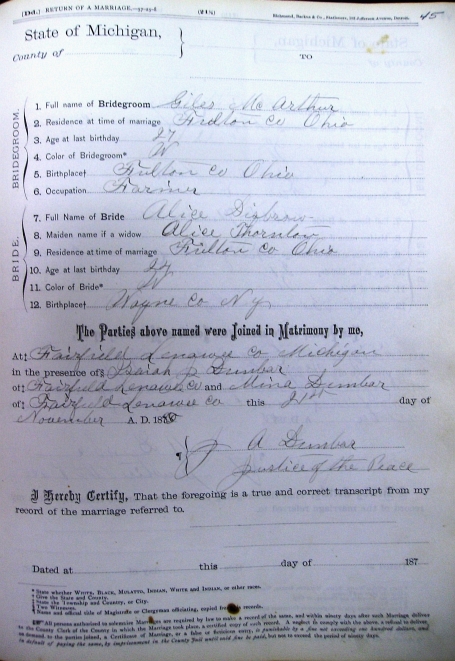 [Dd.] RETURN OF A MARRIAGE. (21½) Richmond, Backus & Co., Stationers, Jefferson Avenue, Detroit. 45
State of Michigan,
County of
TO
BRIDEGROOM.
1. Full name of Bridegroom Giles McArthur
2. Residence at time of marriage Fulton Co Ohio
3. Age at last birthday 27
4. Color of Bridegroom* W
5. Birthplace† Fulton Co Ohio
6. Occupation Farmer
BRIDE.
7. Full Name of Bride Alice Disbrow
8. Maiden name if a widow Alice Thornton
9. Residence at time of marriage Fulton Co Ohio
10. Age at last birthday 24
11. Color of Bride* W
12. Birthplace† Wayne Co Ny
The Parties above named were Joined in Matrimony by me,
At‡ Fairfield Lenawee Co Michigan
in the presence of§ Isaiah Dumbar
of‡ Fairfield Lenawee Co and Mina Dumbar
of‡ Fairfield Lenawee Co this 21st day of
November A. D. 1880
¶ A Dumbar
Justice of the Peace
I Hereby Certify, That the foregoing is a true and correct transcript from my
record of the marriage referred to.
Dated at this day of 187
* State whether WHITE, BLACK, MULATTO, INDIAN, WHITE and INDIAN, or other races.
† Give the State and County.
‡ State the Township and County, or City.
§ Two Witnesses.
¶ Name and official title of Magistrate or Clergyman officiating, copied from records.
All persons authorized to solemnize Marriage are required by law to make a record of the same, and within ninety days after such Marriage deliver
to the County Clerk of the County in which the Marriage took place, a certified copy of such record. A neglect to comply with the above, a refusal to deliver
on demand to the parties joined, a Certificate of Marriage, or a false or fictitious entry, is punishable by a fine not exceeding one hundred dollars, and
in default of paying the same, by imprisonment in the County Jail until said fine be paid, but not to exceed the period of ninety days.